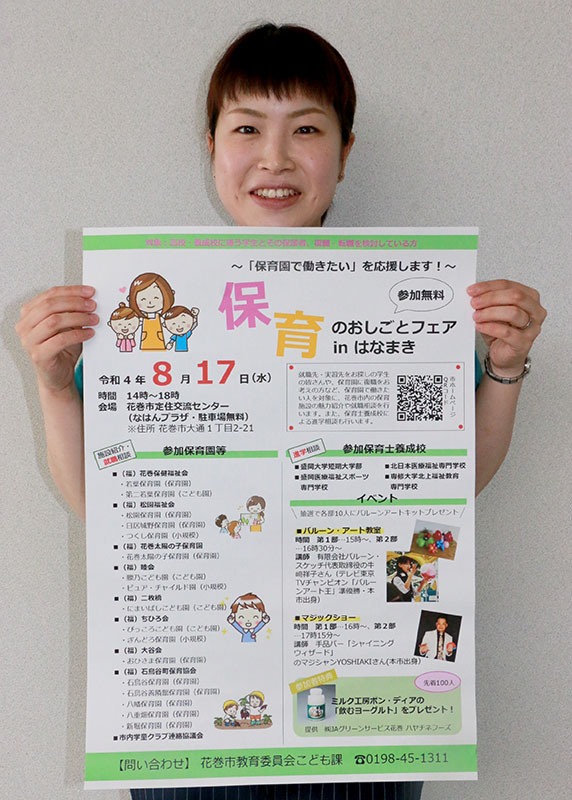 対象：高校・養成校に通う学生とその保護者、復職・転職を検討している方
～「保育園で働きたい」を応援します！～
参加無料
保育
のおしごとフェア
in はなまき
令和4年 8月17日(水)
時間 14時～18時
会場 花巻市定住交流センター
(なはんプラザ・駐車場無料)
※住所 花巻市大通1丁目2-21
就職先・実習先をお探しの学生
の皆さんや、保育園に復職をお
考えの方など、保育園で働きた
い人を対象に、花巻市内の保育
施設の魅力紹介や就職相談を行
います。また、保育士養成校に
よる進学相談も行います。
市ホームページ
QRコード
施設紹介・
就職相談
参加保育園等
■（福）花巻保健福祉会
・若葉保育園（保育園）
・第二若葉保育園（こども園）
■（福）松園福祉会
・松園保育園（保育園）
・日居城野保育園（保育園）
・つくし保育園（小規模）
■（福）花巻太陽の子保育園
・花巻太陽の子保育園（保育園）
■（福）睦会
・矍乃こども園（こども園）
・ピュア・チャイルド園（小規模）
■（福）二枚橋
・にまいばしこども園（こども園）
■（福）ちひろ会
・ぴっころこども園（こども園）
・ぎんどろ保育園（小規模）
■（福）大谷会
・おひさま保育園（保育園）
■（福）石鳥谷町保育協会
・石鳥谷保育園（保育園）
・石鳥谷善隣館保育園（保育園）
・八幡保育園（保育園）
・八重畑保育園（保育園）
・新堀保育園（保育園）
■市内学童クラブ連絡協議会
進学相談
参加保育士養成校
■盛岡大学短期大学部
■北日本医療福祉専門学校
■盛岡医療福祉スポーツ
専門学校
■専修大学北上福祉教育
専門学校
イベント
抽選で各部10人にバルーンアートキットプレゼント
■バルーン・アート教室
時間 第1部…15時～、第2部
…16時30分～
講師 有限会社バルーン・
スケッチ代表取締役の牛
崎祥子さん（テレビ東京
TVチャンピオン「バル
ーンアート王」準優勝・本
市出身）
■マジックショー
時間 第1部…16時～、第2部
…17時15分～
講師 手品バー「シャイニング
ウィザード」
のマジシャンYOSHIAKIさん(本市出身)
参加者特典
先着100人
ミルク工房ボン・ディアの
「飲むヨーグルト」をプレゼント！
提供 ㈱JAグリーンサービス花巻 ハヤチネフーズ
【問い合わせ】 花巻市教育委員会こども課 ☎0198-45-1311